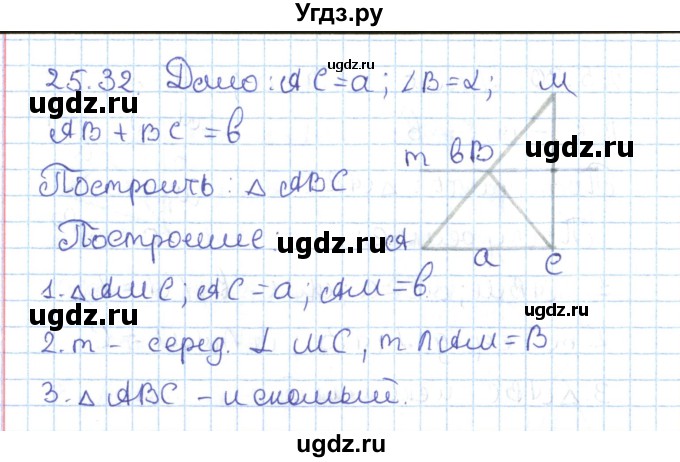 Угдз.ру
25.32. Дано: AC = a; ∠B = α;
ugdz.ru
ugdz.ru
M
AB + BC = b
ugdz.ru
m b B
Построить: △ ABC
Построение:
ugdz.ru
A a C
1. △ AMC; AC = a; AM = b
ugdz.ru
ugdz.ru
2. m - серед. ⊥ MC, m ∩ AM = B
3. △ ABC - искомый.
ugdz.ru
ugdz.ru